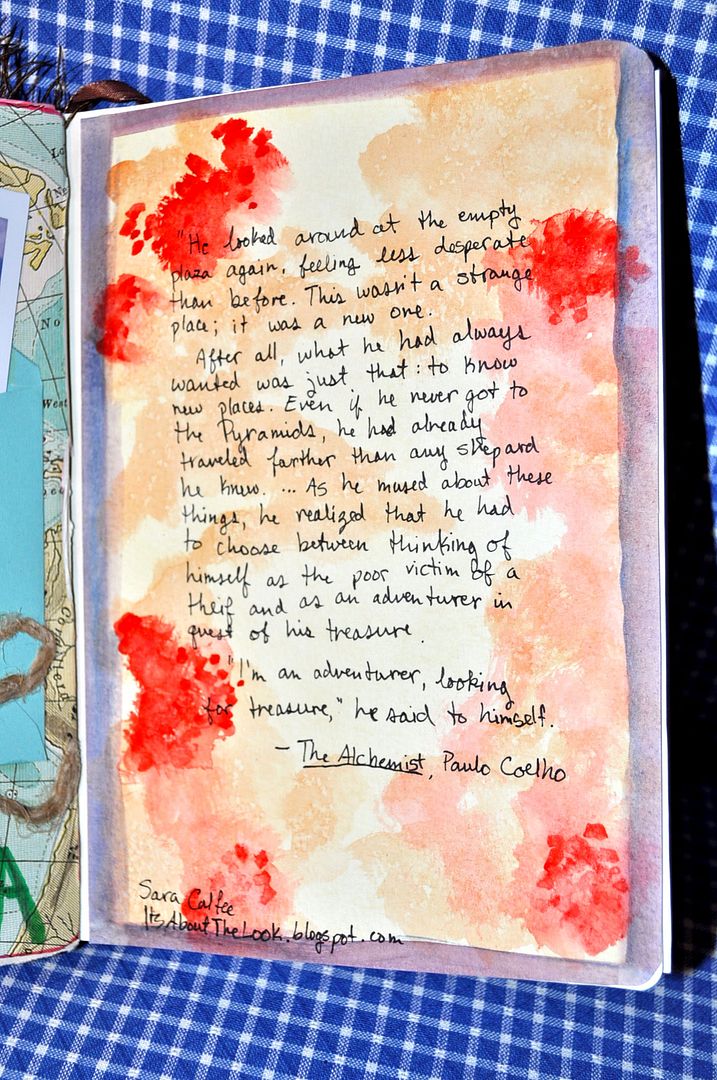 "He looked around at the empty
plaza again, feeling less desperate
than before. This wasn't a strange
place; it was a new one.
After all, what he had always
wanted was just that: to know
new places. Even if he never got to
the Pyramids, he had already
traveled farther than any shepard
he knew. ... As he mused about these
things, he realized that he had
to choose between thinking of
himself as the poor victim of a
theif and as an adventurer in
quest of his treasure.
"I'm an adventurer, looking
for treasure," he said to himself.
- The Alchemist, Paulo Coelho
Sara Calfee
ItsAboutTheLook.blogspot.com
No
West
A